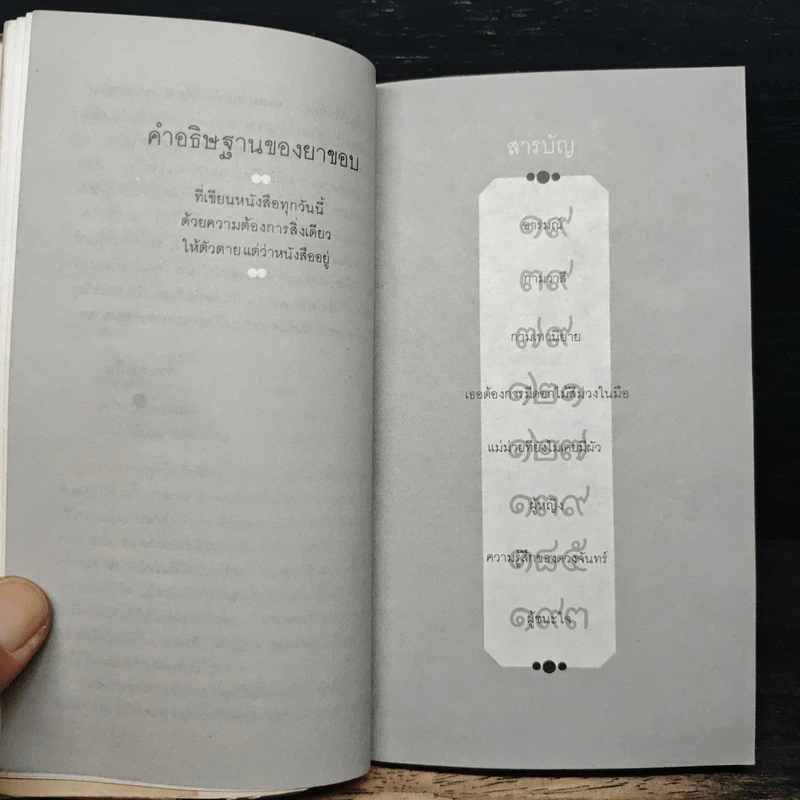 คำอธิษฐานของยาขอบ
ที่เขียนหนังสือทุกวันนี้
ด้วยความต้องการสิ่งเดียว
ให้ตัวตายแต่ว่าหนังสืออยู่
สารบัญ
๑๙
อารมณ์
๓๙
กามวาสี
๗๙
กามเทวนิยาย
๑๒๑
เธอต้องการมีดอกไม้สีม่วงในมือ
๑๒๗
แม่ม่ายที่ยังไม่เคยมีผัว
๑๓๙
ผู้หญิง
๑๘๕
ความรู้สึกของดวงจันทร์
๑๙๓
ผู้ชนะใจ